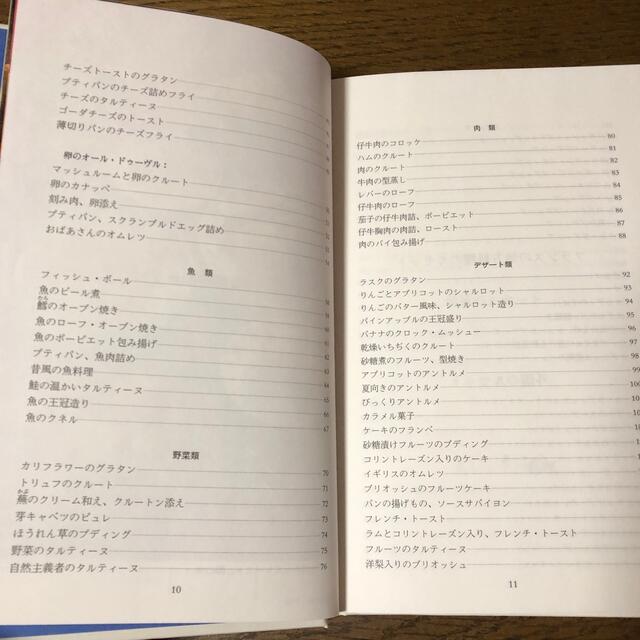 チーズトーストのグラタン
プティパンのチーズ詰めフライ
チーズのタルティーヌ
ゴーダチーズのトースト
薄切りパンのチーズフライ
卵のオール・ドゥーヴル：
マッシュルームと卵のクルート
卵のカナッペ
刻み肉、卵添え
プティパン、スクランブルドエッグ詰め
おばあさんのオムレツ
魚 類
フィッシュ・ボール
魚のビール煮
鱈のオーブン焼き
魚のローフ・オーブン焼き
魚のポーピエット包み揚げ 63
プティパン、魚肉詰め 64
昔風の魚料理
鮭の温かいタルティーヌ 65
魚の王冠造り 66
魚のクネル 67
野菜類
カリフラワーのグラタン 70
トリュフのクルート 71
蕪のクリーム和え、クルートン添え 72
芽キャベツのピュレ 73
ほうれん草のプディング 74
野菜のタルティーヌ 75
自然主義者のタルティーヌ 76
10
肉 類
仔牛肉のコロッケ 80
ハムのクルート 81
肉のクルート 82
牛肉の型蒸し 83
レバーのローフ 84
仔牛肉のローフ 85
茄子の仔牛肉詰、ポーピエット 86
仔牛胸肉の肉詰、ロースト 87
肉のパイ包み揚げ 88
デザート類
ラスクのグラタン 92
りんごとアプリコットのシャルロット 93
りんごのバター風味、シャルロット造り 94
パインアップルの王冠盛り 95
バナナのクロック・ムッシュー 96
乾燥いちぢくのクルート 97
砂糖煮のフルーツ、型焼き 98
アプリコットのアントルメ 99
夏向きのアントルメ
びっくりアントルメ
カラメル菓子
ケーキのフランベ
砂糖漬けフルーツのプディング
コリントレーズン入りのケーキ
イギリスのオムレツ
ブリオッシュのフルーツケーキ
パンの揚げもの、ソースサバイヨン
フレンチ・トースト
ラムとコリントレーズン入り、フレンチ・トースト
フルーツのタルティーヌ
洋梨入りのブリオッシュ
11